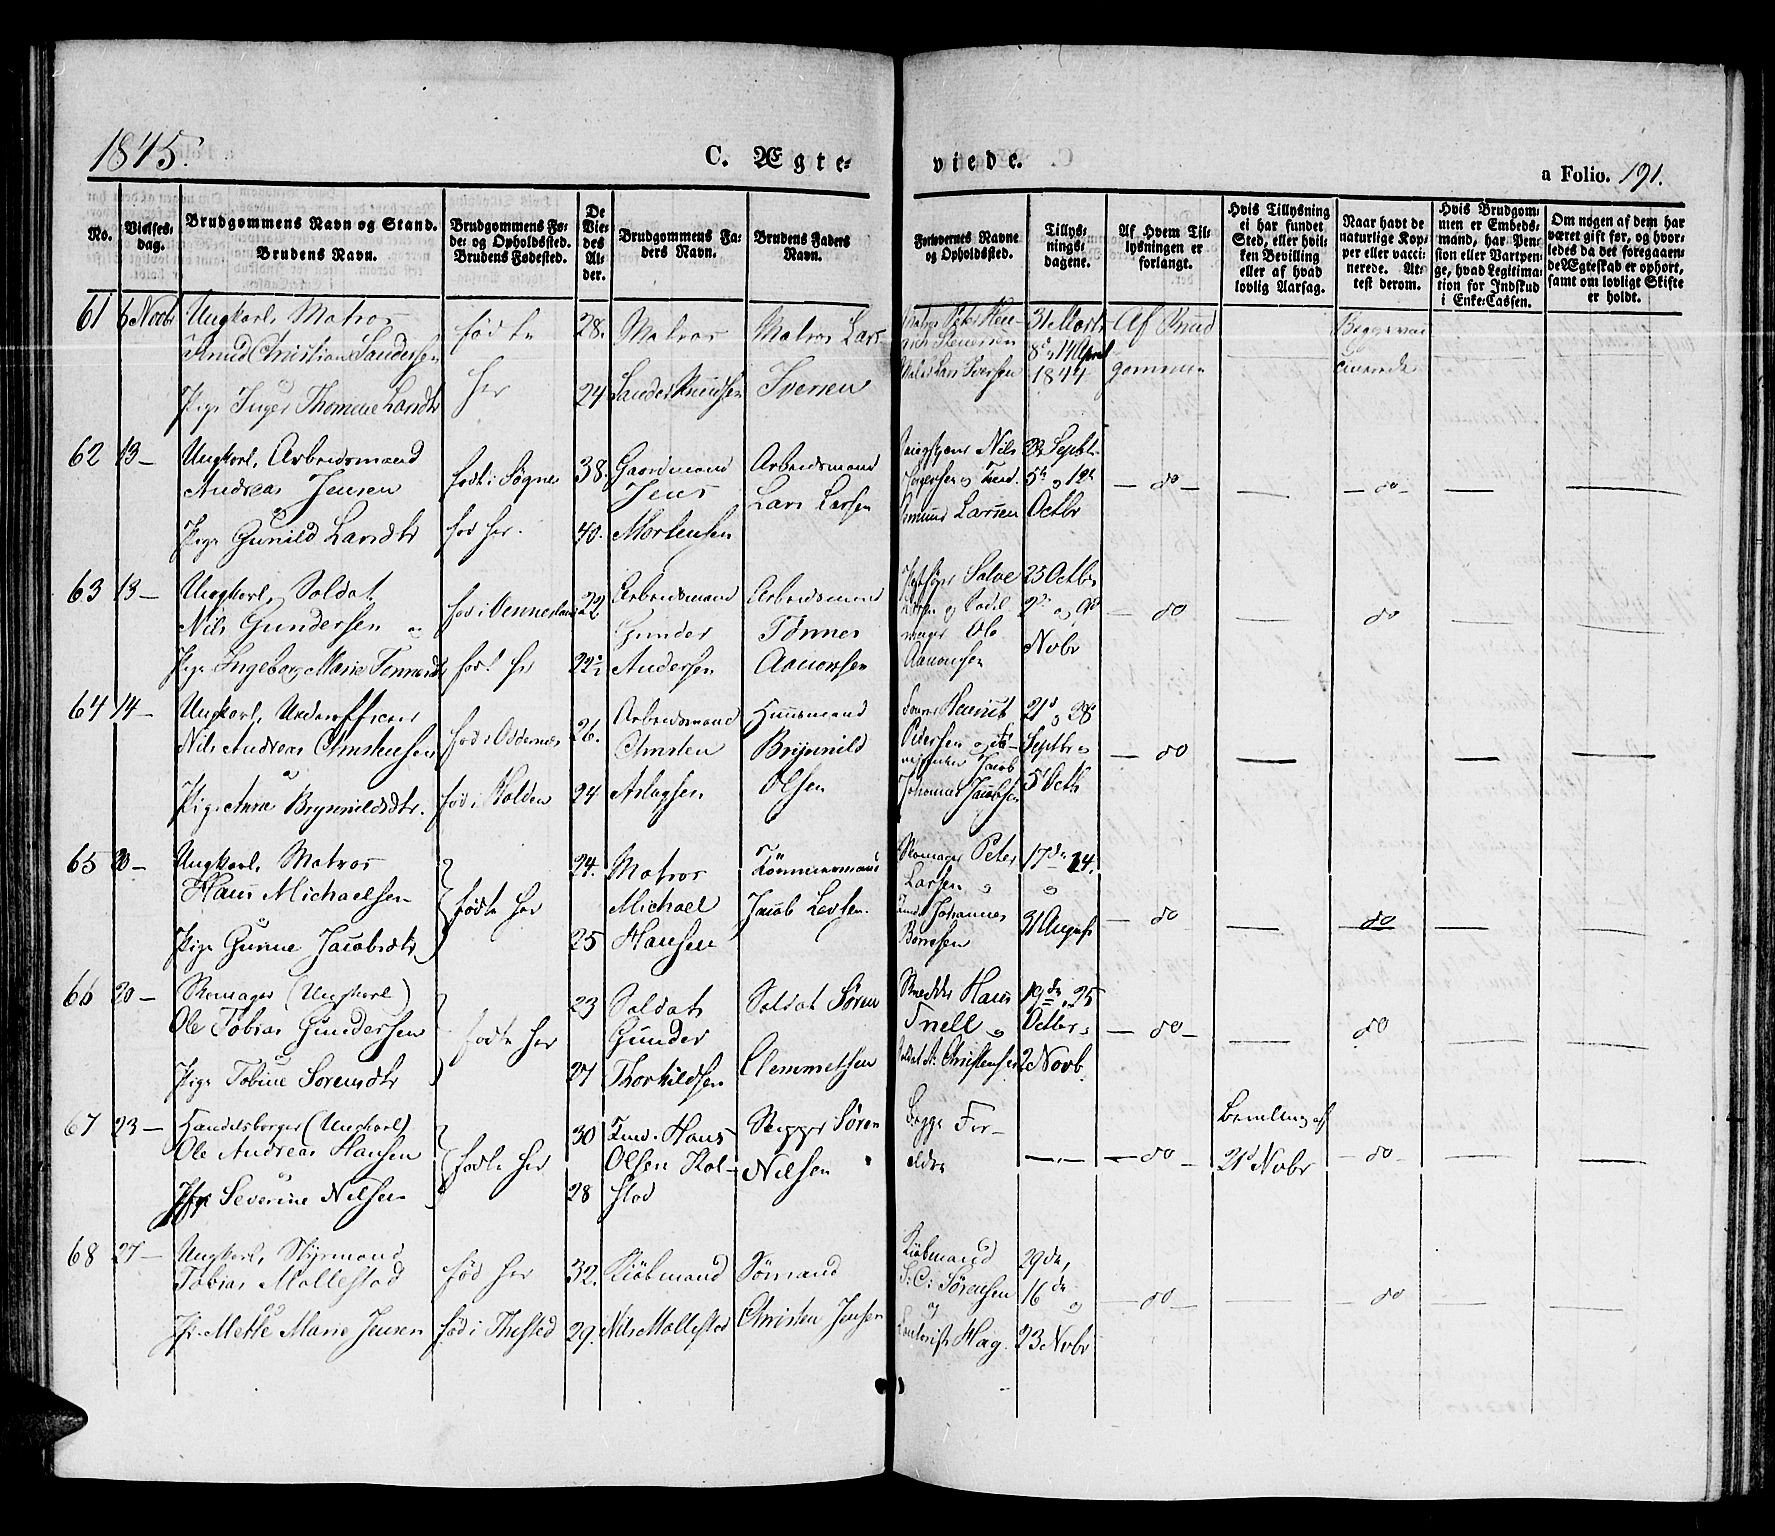 1845.
C. Ægte-
viede.
a Folio. 191.
No.
Vielses-
dag.
Brudgommens Navn og Stand.
Brudens Navn.
Brudgommens Fø-
de- og Opholdssted.
Brudens Fødested.
De
Vie-
des
Al-
der.
Brudgommens Fa-
ders Navn.
Brudens Faders
Navn.
Forlovernes Navne
og Opholdssted.
Tillys-
nings-
dagene.
Af Hvem Til-
lysningen er
forlangt.
Hvis Tillysning
ei har fundet
Sted, eller hvil-
ken Bevilling
eller af hvad
lovlig Aarsag.
Naar havt de
naturlige Kop-
per eller vacci-
nerede. At-
test derom.
Hvis Brudgom-
men er Embeds-
mand, har Pen-
sion eller Vartpen-
ge, hvad Legitima-
tion for Indskud
i Enke-Cassen.
Om nogen af dem har
været gift før, og hvor-
ledes da det foregaaen-
de Ægteskab er ophørt,
samt om lovligt Skifte
er holdt.
61 6 Novbr Ungkarl, Matros
Knud Christian Sandersen
Pige Inger Thomine Larsdtr
fødte
her
28.
24
Matros
Sander Knudsen
Matros Lars
Iversen
Lars Iversen
31 Marts
8de 14 April
1844
Af Brud
gommen
Begge vac
cinerede
62 13 — Ungkarl, Arbeidsmand
Andreas Jensen
og
Pige Gunild Larsdtr
født i Søgne
fød her.
38.
40.
Gaardmand
Jens
Mortensen
Arbeidsmand
Lars Larsen
Nils
Jørgensen og
Larsen
Septbr
5te og 12te
Octbr
— do —
— do —
63 13 — Ungkarl, Soldat
Nils Gundersen og
Pige Ingeborg Marie Tønnesdtr
født her
22
22½
Arbeidsmand
Gunder
Andersen
Arbeidsmand
Tønnes
Aanonsen
Salve
og
Ole
Aanonsen
25 Octbr
2den og 9de
Novbr
— do —
do
64 14 — Ungkarl, Underofficeer
Nils Andreas Christensen
og
Pige Anne Brynnildsdtr.
fød i Oddernes
fød i Halden
26.
24
Arbeidsmand
Christen
Aslagsen
Huusmand
Brynnild
Olsen
Henrich
Pedersen og
Jacob
Johannes Jacobsen
21de og 28de
Septbr og
5te Octb
— do
65 20 — Ungkarl, Matros
Hans Michaelsen
og
Pige Gunne Jacobsdtr
fødte her
24.
25
Matros
Michael
Hansen
Tømmermand
Jacob Larsen.
Skomager Peter
Larsen og
Johannes
17de 24.
og
31 August
— do
do
66 20 — Skomager (Ungkarl)
Ole Tobias Gundersen
og
Pige Tobine Sørensdtr
fødte her
23
27
Soldat
Gunder
Thorkildsen
Soldat Søren
Clemmetsen
Hans
Tnell og
Christensen
19de, 25
Octbr og
2 Novb.
— do —
do
67 23 — Handelsborger (Ungkarl)
Ole Andreas Hansen
og
Severine Nilsen
fødte her
30
28
Hans
Olsen Kol-
stad
Skipper Søren
Nilsen
Begge For-
ældre
— do —
Bevilling af
21de Novbr
— do —
68 27 — Ungkarl, Styrmand
Tobias Mollestad
og
Jfr Mette Marie Jensen
fød her
fød i Thisted
32.
29.
Kiøbmand
Nils Mollestad
Sømand
Christen Jensen
Kiøbmand
S: C: Sørensen
og
Hag.
29de,
16de
og
23 Novbr
— do —
— do